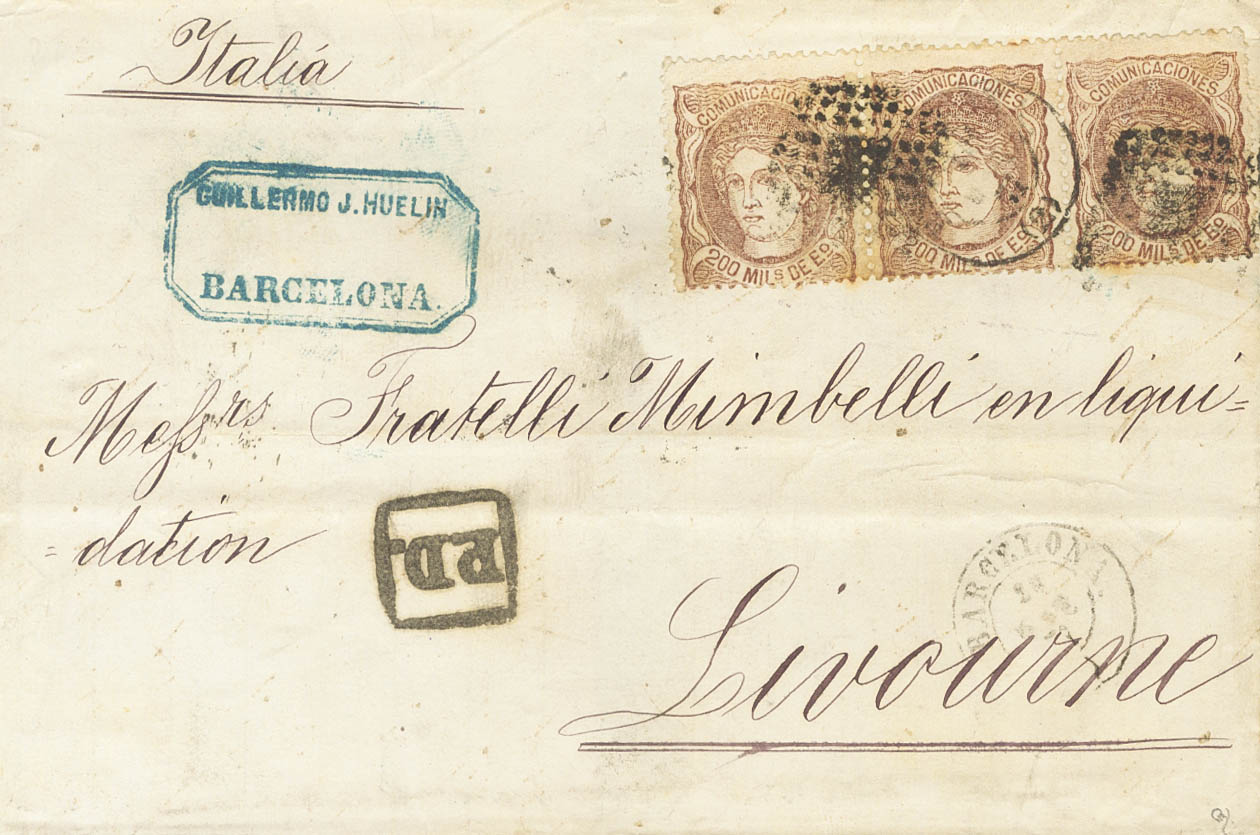 Italiá
COMUNICACIONES
200 MILS DE Eº
COMUNICACIONES
200 MILS DE Eº
COMUNICACIONES
200 MILS DE Eº
GUILLERMO J. HUELIN
BARCELONA.
Messrs Fratelli Mimbelli en liqui=
=dation
P.D.
BARCELONA
Livourne